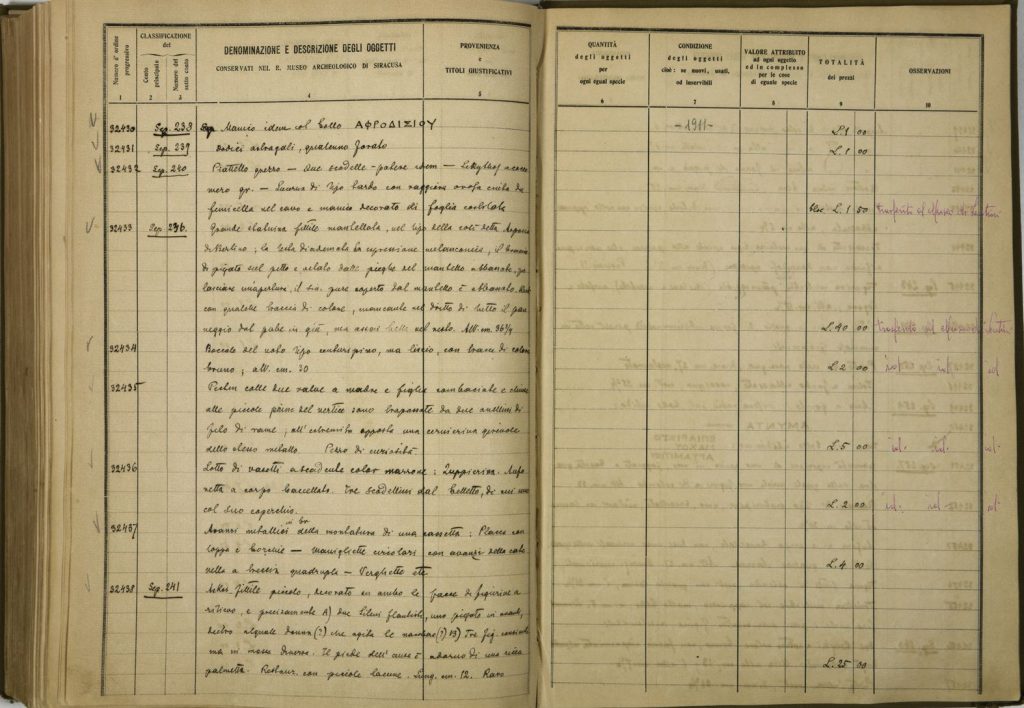 Numero d'ordine progressivo
CLASSIFICAZIONE del
Conto principale
Numero del sotto conto
DENOMINAZIONE E DESCRIZIONE DEGLI OGGETTI
CONSERVATI NEL R. MUSEO ARCHEOLOGICO DI SIRACUSA
PROVENIENZA
e
TITOLI GIUSTIFICATIVI
1 2 3 4 5
32430 Sep. 233 Manico idem col bollo ΑΦΡΟΔΙΣΙΟΥ
32431 Sep. 239 dodici astragali, forato
32432 Sep. 240 Piattello grezzo — due scodelle
mero gr. — Lucerna di tipo tardo con raggiera
femminella nel cavo e manico decorato di foglia
32433 Sep. 236. Grande statuina fittile mantellata, nel tipo della così detta
di Berlino; la testa diademata ha espressione melanconica, il braccio
piegato sul petto e velato dalle pieghe del mantello
il sin. pure coperto dal mantello è abbassato.
con qualche traccia di colore, mancante nel dritto di tutto il pan
neggio dal pube in giù, ma assai bello nel resto. Alt. cm. 36
32434 Boccale del noto tipo centuripino, ma liscio, con tracce di colore
bruno; alt. cm. 30
32435 Pecten colle due valve a madre e figlia combaciate e chiuse
alle piccole prime del vertice sono trapassate da due anellini di
filo di rame; all'estremità opposta una cernierina
dello stesso metallo Pezzo di curiosità
32436 Lotto di vasetti color marrone: Zuppierina. Anfo
retta a corpo baccellato. Tre scodellini dal belletto, di cui uno
col suo coperchio.
32437 Avanzi metallici in br. della montatura di una cassetta: Placca con
toppa e borchie — Manigliette circolari con avanzi della cate
nella a treccia quadrupla — Verghette etc
32438 Sep. 241 Askos fittile piccolo, decorato su ambo le facce di figurine a
rilievo, e precisamente A) due Sileni flautisti, uno piegato in avanti,
dietro al quale donna (?) che agita le (?) B) Tre fig. consimili
ma in mosse diverse. Il piede dell'ansa è adorno di una ricca
palmetta. Restaur. con piccole lacune. Lung. cm. 12. Raro
QUANTITÀ
degli oggetti
per
ogni egual specie
CONDIZIONE
degli oggetti
cioè: se nuovi, usati,
od inservibili
VALORE ATTRIBUITO
ad ogni oggetto
ed in complesso
per le cose
di eguale specie
TOTALITÀ
dei prezzi
OSSERVAZIONI
6 7 8 9 10
-1911-
L. 1 00
L. 1 00
L. 1 50 trasferito al Museo di
L. 40 00 trasferito al Museo di
L. 2 00 id. id. id.
L. 5 00 id. id. id.
L. 2 00 id. id. id.
L. 4 00
L. 25 00